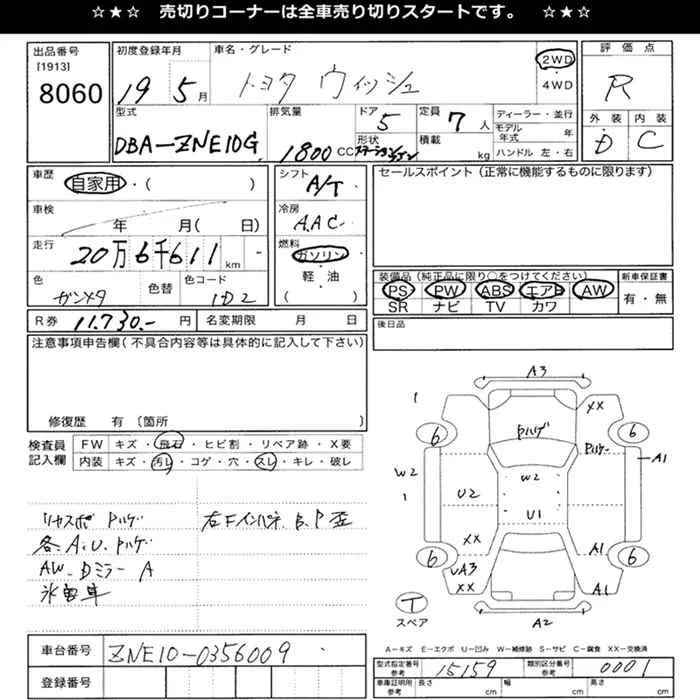 ☆★☆ 売切りコーナーは全車売り切りスタートです。 ☆★☆
出品番号 初度登録年月 車名・グレード 評価点
[1913]
8060 19 5月 トヨタ ウィッシュ 2WD・4WD R
型式 排気量 ドア 5 定員 7人 ディーラー・並行 外装 内装
DBA-ZNE10G 1800CC 形状 積載 kg モデル年式 年 D C
ハンドル 左・右
車歴 自家用・( ) シフト A/T セールスポイント(正常に機能するものに限ります)
車検 年 月( 日) 冷房 A.A.C
走行 20万6千611km 燃料 ガソリン・軽油 ( )
色 ガンメタ 色替 色コード 1D2
装備品(純正品に限り○をつけてください) 新車保証書
PS PW ABS エアB AW 有・無
SR ナビ TV カワ
R券 11.730.-円 名変期限 月 日 後日品
注意事項申告欄(不具合内容等は具体的に記入して下さい)
修復歴 有 〔箇所
検査員記入欄 FW キズ・飛石・ヒビ割・リペア跡・X要
内装 キズ・汚レ・コゲ・穴・スレ・キレ・破レ
リヤスポ Pハゲ 右Fインパネ B.P歪
各A.U.Pハゲ
AW.Dミラー A
氷雹車
A3
1 XX
6 Pハゲ Pハゲ 6
W2 W2 A1
1 U2 U1
XX A1
6 UA3 6
XX A1
T A2
スペア
A-キズ E-エクボ U-凹み W-補修跡 S-サビ C-腐食 XX-交換済
車台番号 ZNE10-0356009
登録番号
型式指定番号 参考 15159 類別区分番号 参考 0001
車庫証明用 参考 長さ cm 幅 cm 高さ cm